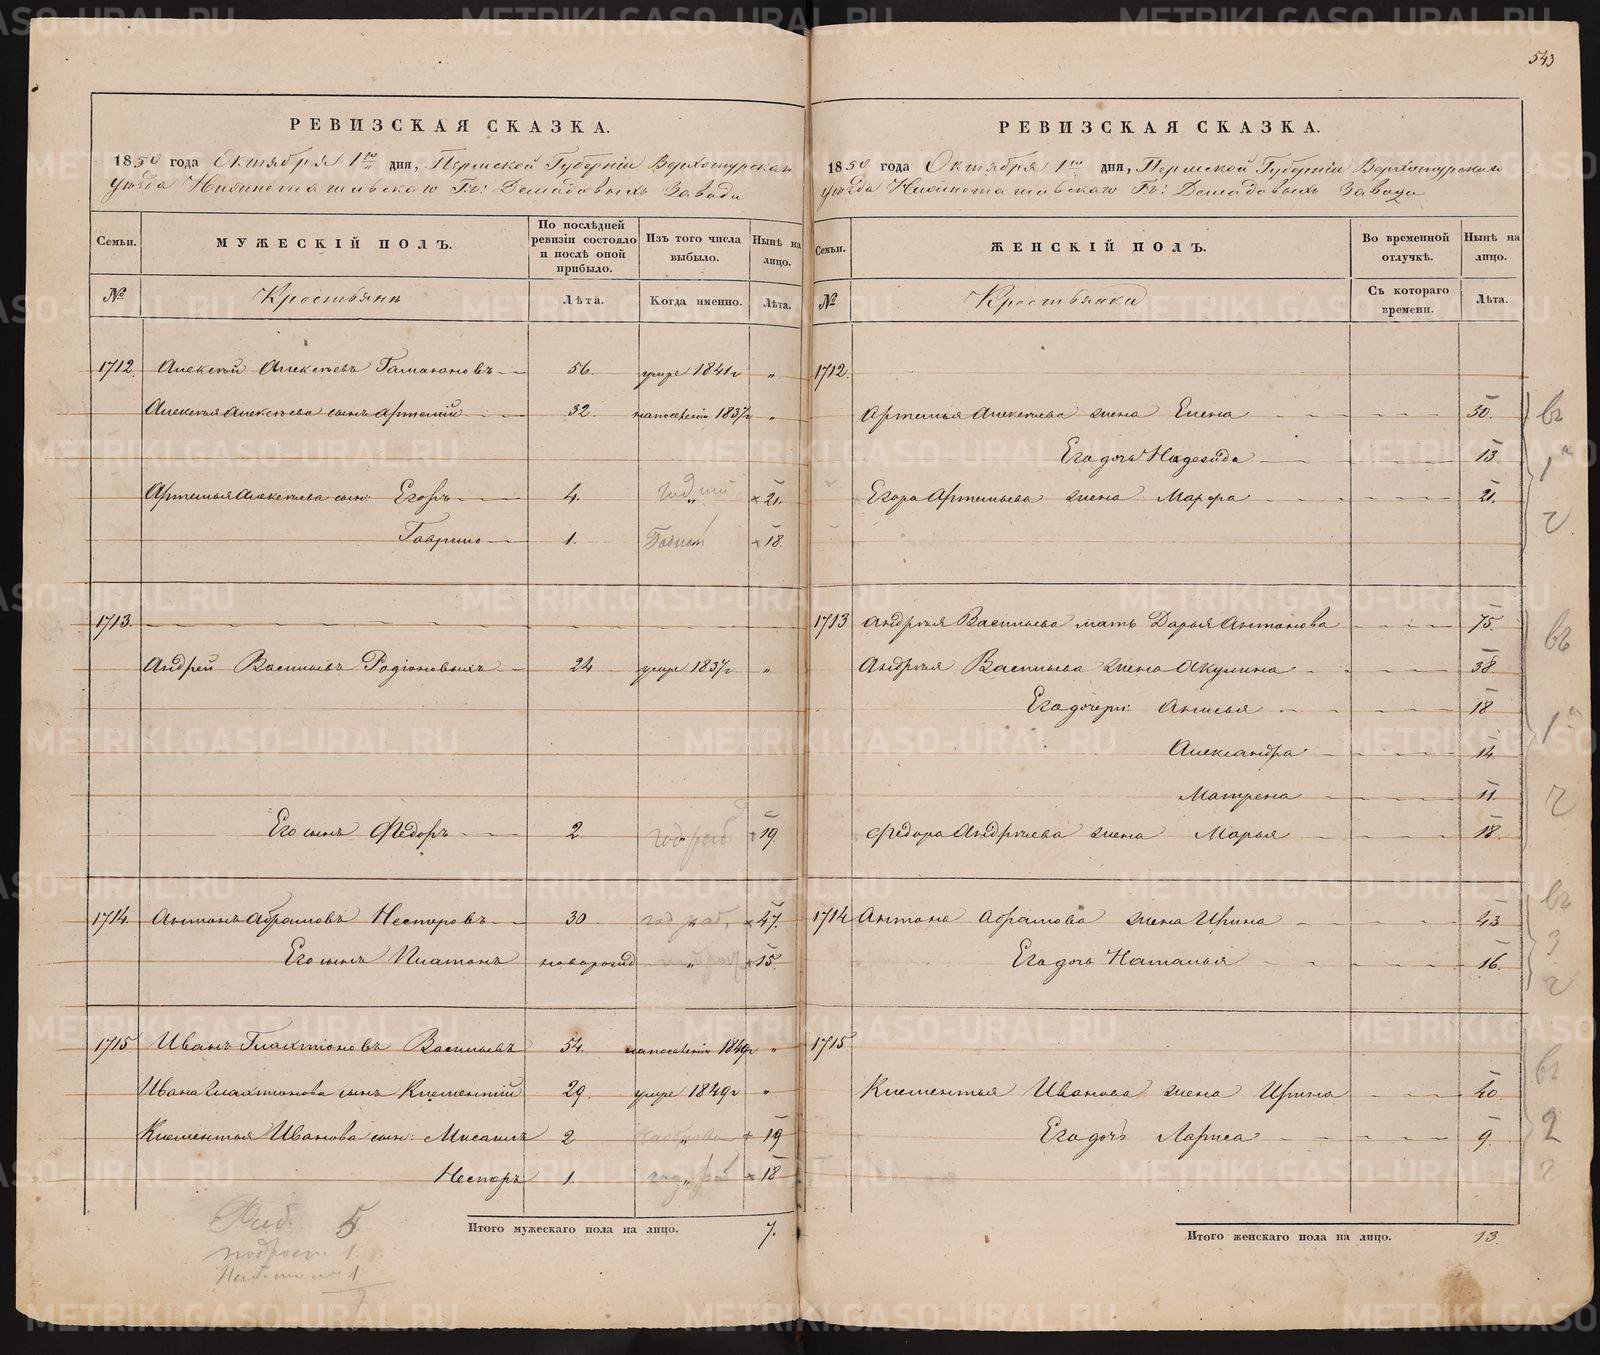 543
РЕВИЗСКАЯ СКАЗКА.
1850 года Октября 1го дня, Пермской Губерніи Верхотурскаго
уѣзда Нижнотагильскаго Гг: Демидовыхъ Завода
Семьи. МУЖЕСКІЙ ПОЛЪ. По послѣдней ревизіи состояло и послѣ оной прибыло. Изъ того числа выбыло. Нынѣ на лицо.
№ Крестьянъ Лѣта. Когда именно. Лѣта.
1712. Алексѣй Алексѣевъ 56. умре 1841г "
Алексѣя Алексѣева сынъ Артемій 32. на поселеніи 1837г "
Артемья Алексѣева сын: Егоръ 4. 21.
Гаврило 1. 18.
1713.
Андрей Васильевъ Родіоновыхъ 24 умре 1837г "
Его сынъ Федоръ 2. 19.
1714. Антонъ Абрамовъ Несторовъ 30 47.
Его сынъ Платонъ новорожд 15.
1715 Иванъ Галахтіоновъ Васильевъ 54. на поселеніи 1840г "
Ивана Галахтіонова сынъ Клементій 29. умре 1849г "
Клементья Иванова сын: Мисаилъ 2 19
Несторъ 1. 18
Итого мужескаго пола на лицо. 7.
Раб. 5
подрост. 1.
1
7
РЕВИЗСКАЯ СКАЗКА.
1850 года Октября 1го дня, Пермской Губерніи Верхотурскаго
уѣзда Нижнотагильскаго Гг: Демидовыхъ Завода
Семьи. ЖЕНСКІЙ ПОЛЪ. Во временной отлучкѣ. Нынѣ на лицо.
№ Крестьянки Съ котораго времени. Лѣта.
1712.
Артемья Алексѣева жена Елена 50.
Его дочь Надежда 13.
Егора Артемьева жена Марфа 21.
1713 Андрѣя Васильева мать Дарья Антонова 75.
Андрѣя Васильева жена Акулина 38
Его дочери: Анисья 18
Александра 14.
Матрена 11.
Федора Андрѣева жена Марья 18.
1714 Антона Абрамова жена Ирина 43
Его дочь Наталья 16.
1715
Клементья Иванова жена Ирина 40.
Его дочь Лариса 9.
Итого женскаго пола на лицо. 13.
METRIKI.GASO-URAL.RU